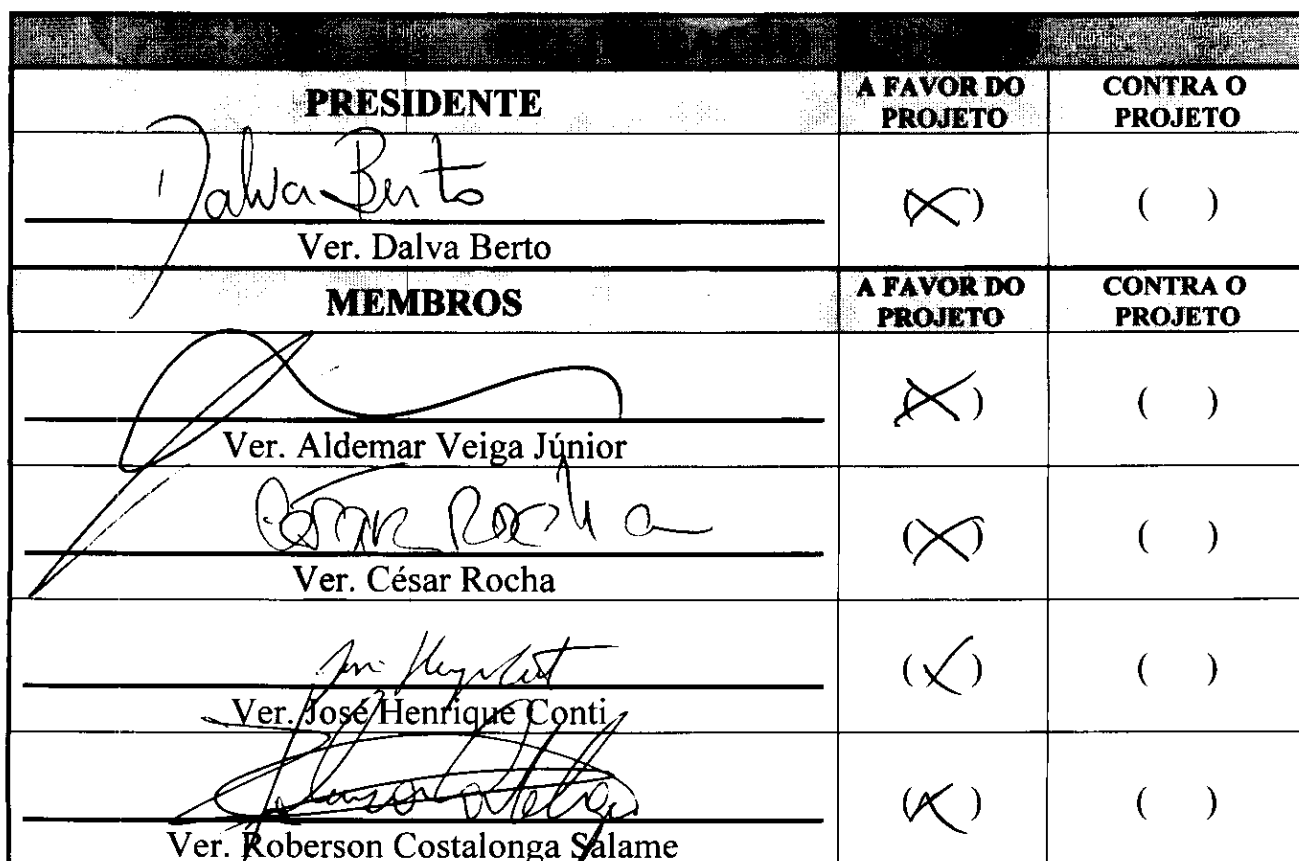 PRESIDENTE
A FAVOR DO PROJETO
CONTRA O PROJETO
Dalva Berto
(X)
( )
Ver. Dalva Berto
MEMBROS
A FAVOR DO PROJETO
CONTRA O PROJETO
(X)
( )
Ver. Aldemar Veiga Júnior
César Rocha
(X)
( )
Ver. César Rocha
(X)
( )
Ver. José Henrique Conti
(X)
( )
Ver. Roberson Costalonga Salame